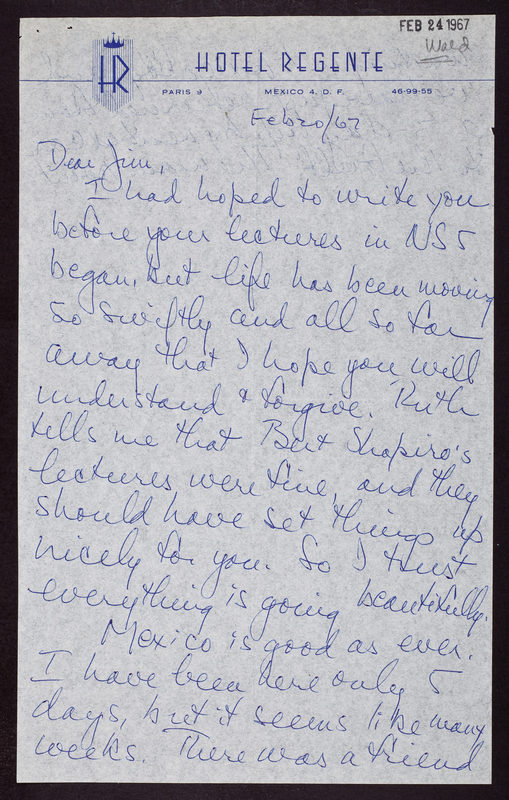 FEB 24 1967
Wald
HR
HOTEL REGENTE
PARIS 9 MEXICO 4, D. F. 46-99-55
Feb 20/67
Dear Jim,
I had hoped to write you
before your lectures in NS 5
began, but life has been moving
so swiftly and all so far
away that I hope you will
understand & forgive. Ruth
tells me that Bert Shapiro's
lectures were fine, and they
should have set things up
nicely for you. So I trust
everything is going beautifully.
Mexico is good as ever.
I have been here only 5
days, but it seems like many
weeks. There was a friend